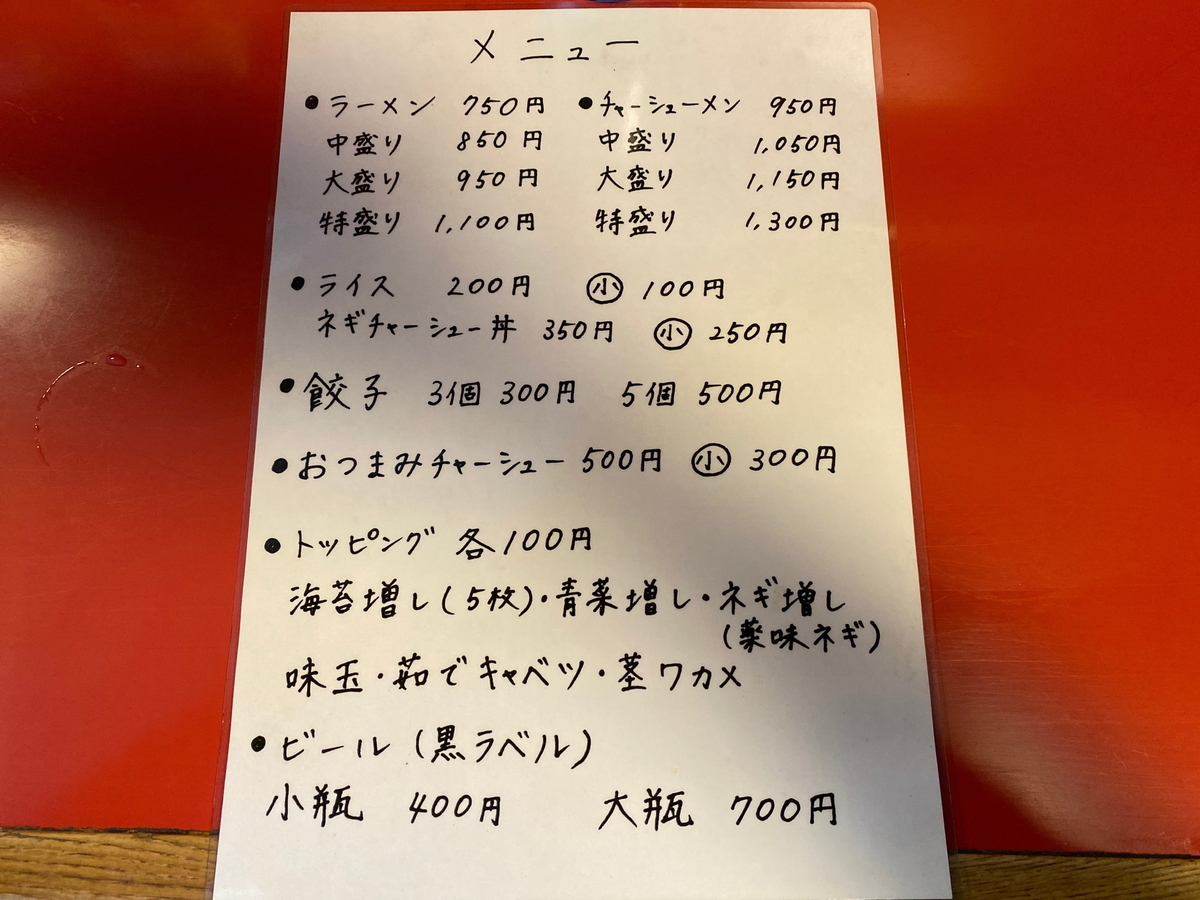 メニュー
●ラーメン 750円 ●チャーシューメン 950円
中盛り 850円 中盛り 1,050円
大盛り 950円 大盛り 1,150円
特盛り 1,100円 特盛り 1,300円
●ライス 200円 ㊥小 100円
ネギチャーシュー丼 350円 小 250円
●餃子 3個 300円 5個 500円
●おつまみチャーシュー 500円 小 300円
●トッピング 各100円
海苔増し(5枚)・青菜増し・ネギ増し
(薬味ネギ)
味玉・茹でキャベツ・茎ワカメ
●ビール(黒ラベル)
小瓶 400円 大瓶 700円